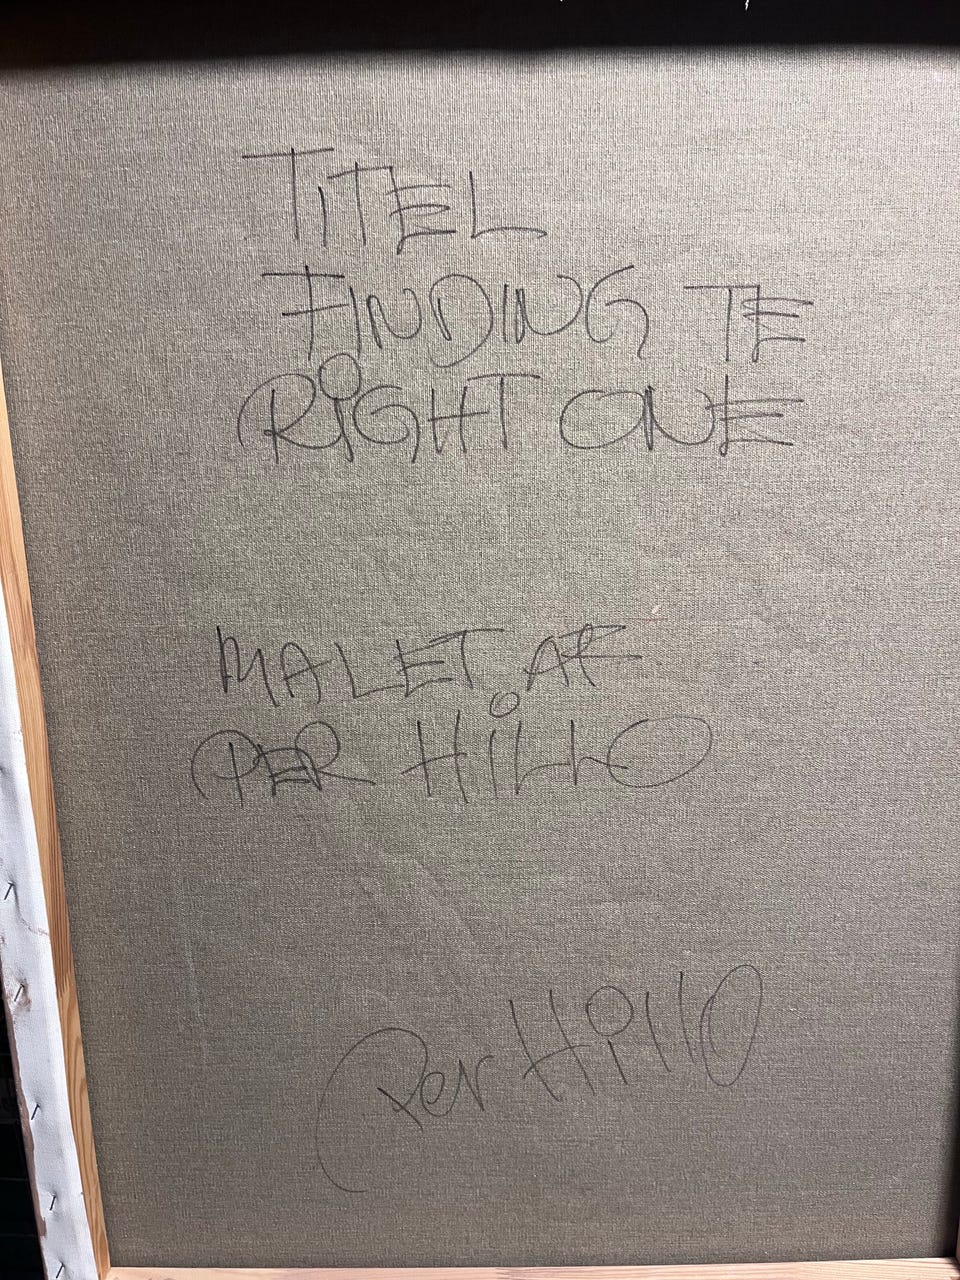 TITEL
FINDING TE
RIGHT ONE
MALET AF
PER HILLO
Per Hillo